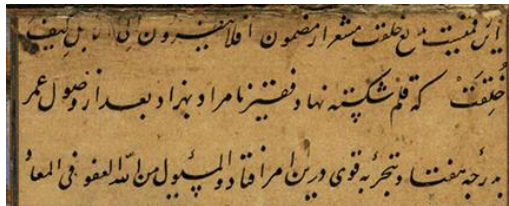 این نقشیست بدیع خلقت مشعر از مضمون افلا ینظرون الی الابل کیف
خُلِقَت که قلم شکسته نهاد فقیر نامراد بهزاد بعد از وصول عمر
بدرجه هفتاد و بتجربه قوی درین امر افتاد و المسئول من الله العفو فی المعاد